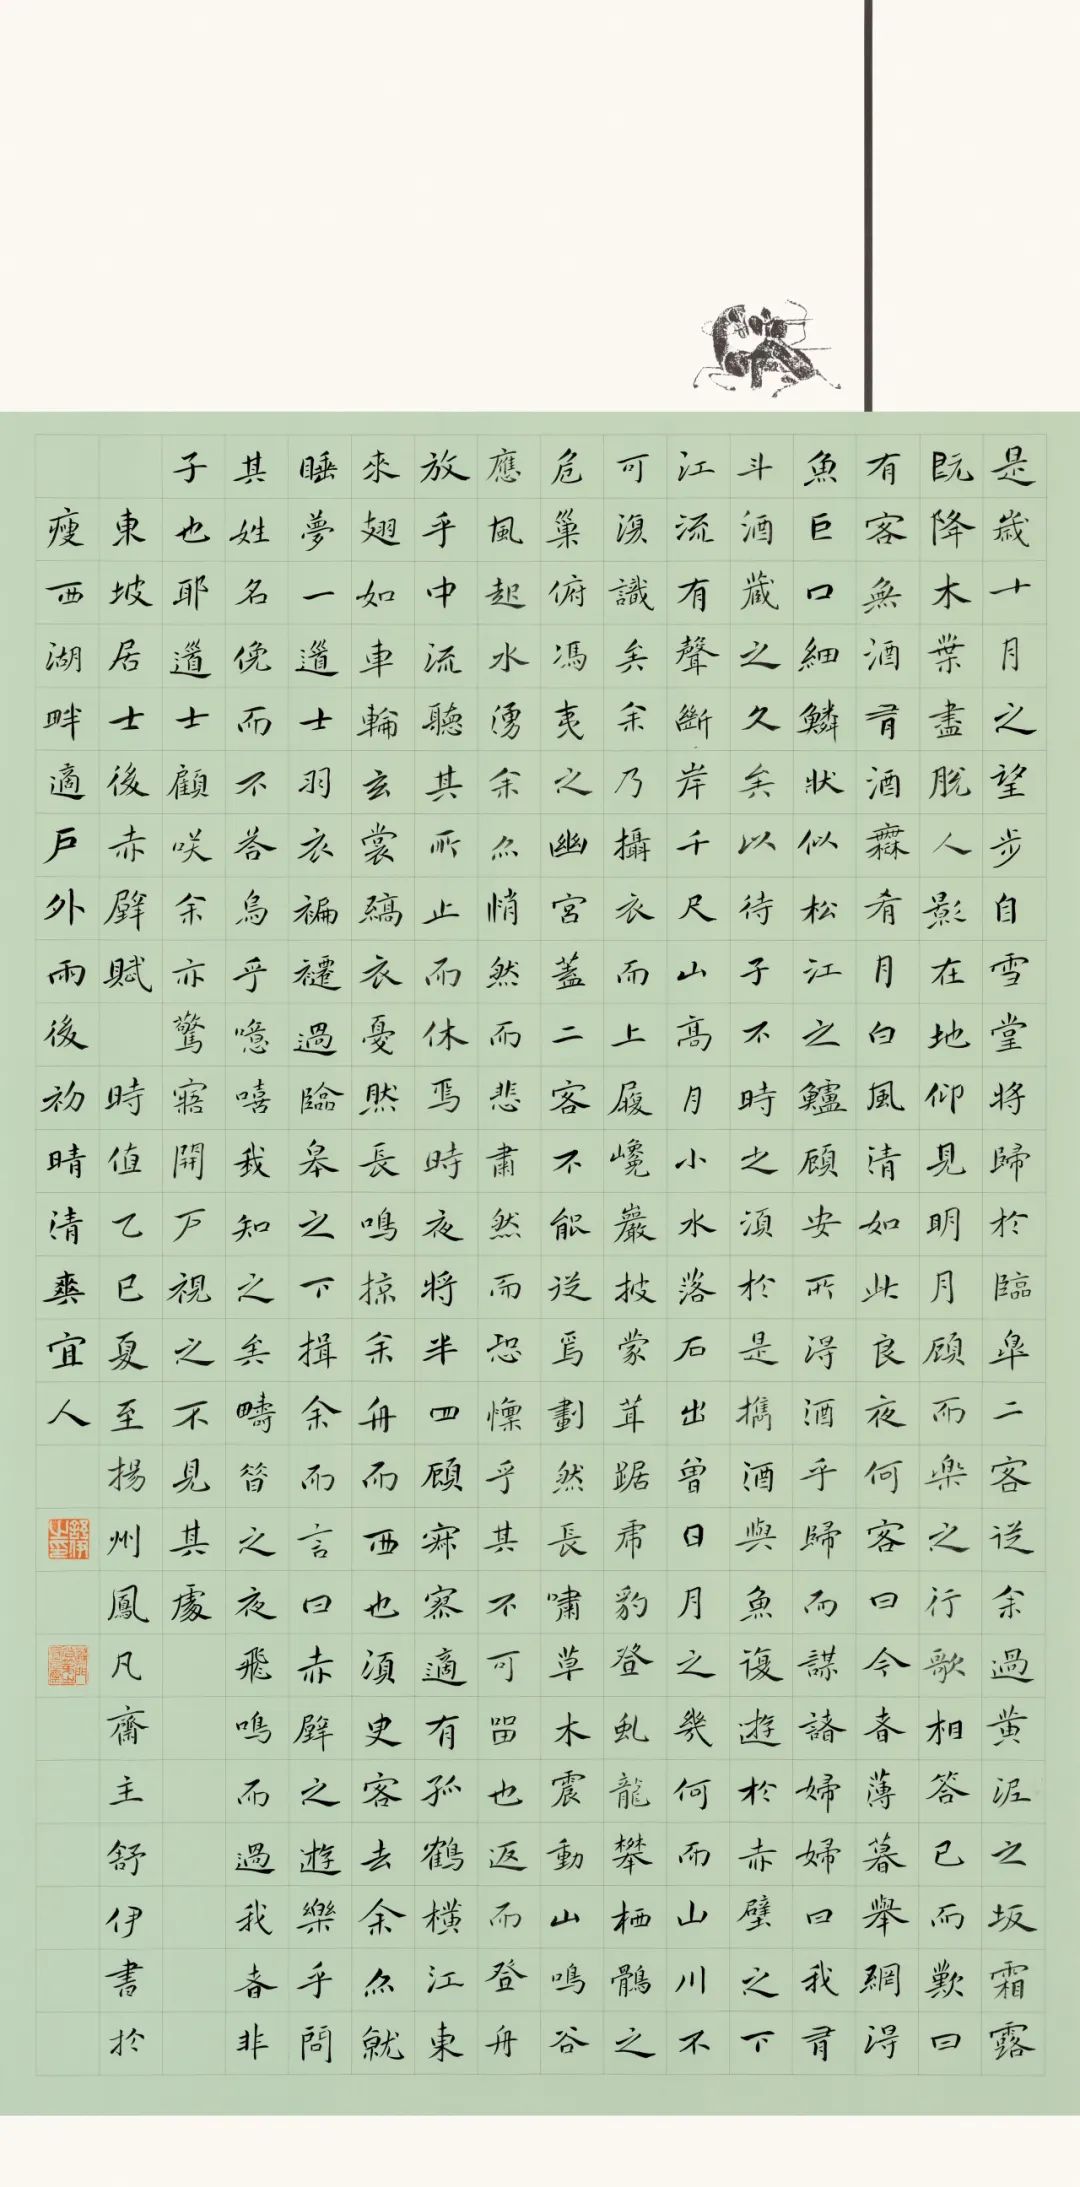 是歲十月之望步自雪堂將歸於臨皐二客從余過黃泥之坂霜露
既降木葉盡脫人影在地仰見明月顧而樂之行歌相答已而歎曰
有客無酒有酒無肴月白風清如此良夜何客曰今者薄暮舉網得
魚巨口細鱗狀似松江之鱸顧安所得酒乎歸而謀諸婦婦曰我有
斗酒藏之久矣以待子不時之須於是攜酒與魚復遊於赤壁之下
江流有聲斷岸千尺山高月小水落石出曾日月之幾何而山川不
可復識矣余乃攝衣而上履巉巖披蒙茸踞虎豹登虬龍攀栖鶻之
危巢俯馮夷之幽宮蓋二客不能從焉劃然長嘯草木震動山鳴谷
應風起水湧余亦悄然而悲肅然而恐懍乎其不可留也返而登舟
放乎中流聽其所止而休焉時夜將半四顧寂寥適有孤鶴橫江東
來翅如車輪玄裳縞衣戛然長鳴掠余舟而西也須臾客去余亦就
睡夢一道士羽衣褊褼過臨皋之下揖余而言曰赤壁之遊樂乎問
其姓名俛而不答烏乎噫嘻我知之矣疇昔之夜飛鳴而過我者非
子也耶道士顧咲余亦驚寤開戶視之不見其處
東坡居士後赤壁賦 時值乙巳夏至揚州鳳凡齋主舒伊書於
瘦西湖畔適戶外雨後初晴清爽宜人
舒伊之印